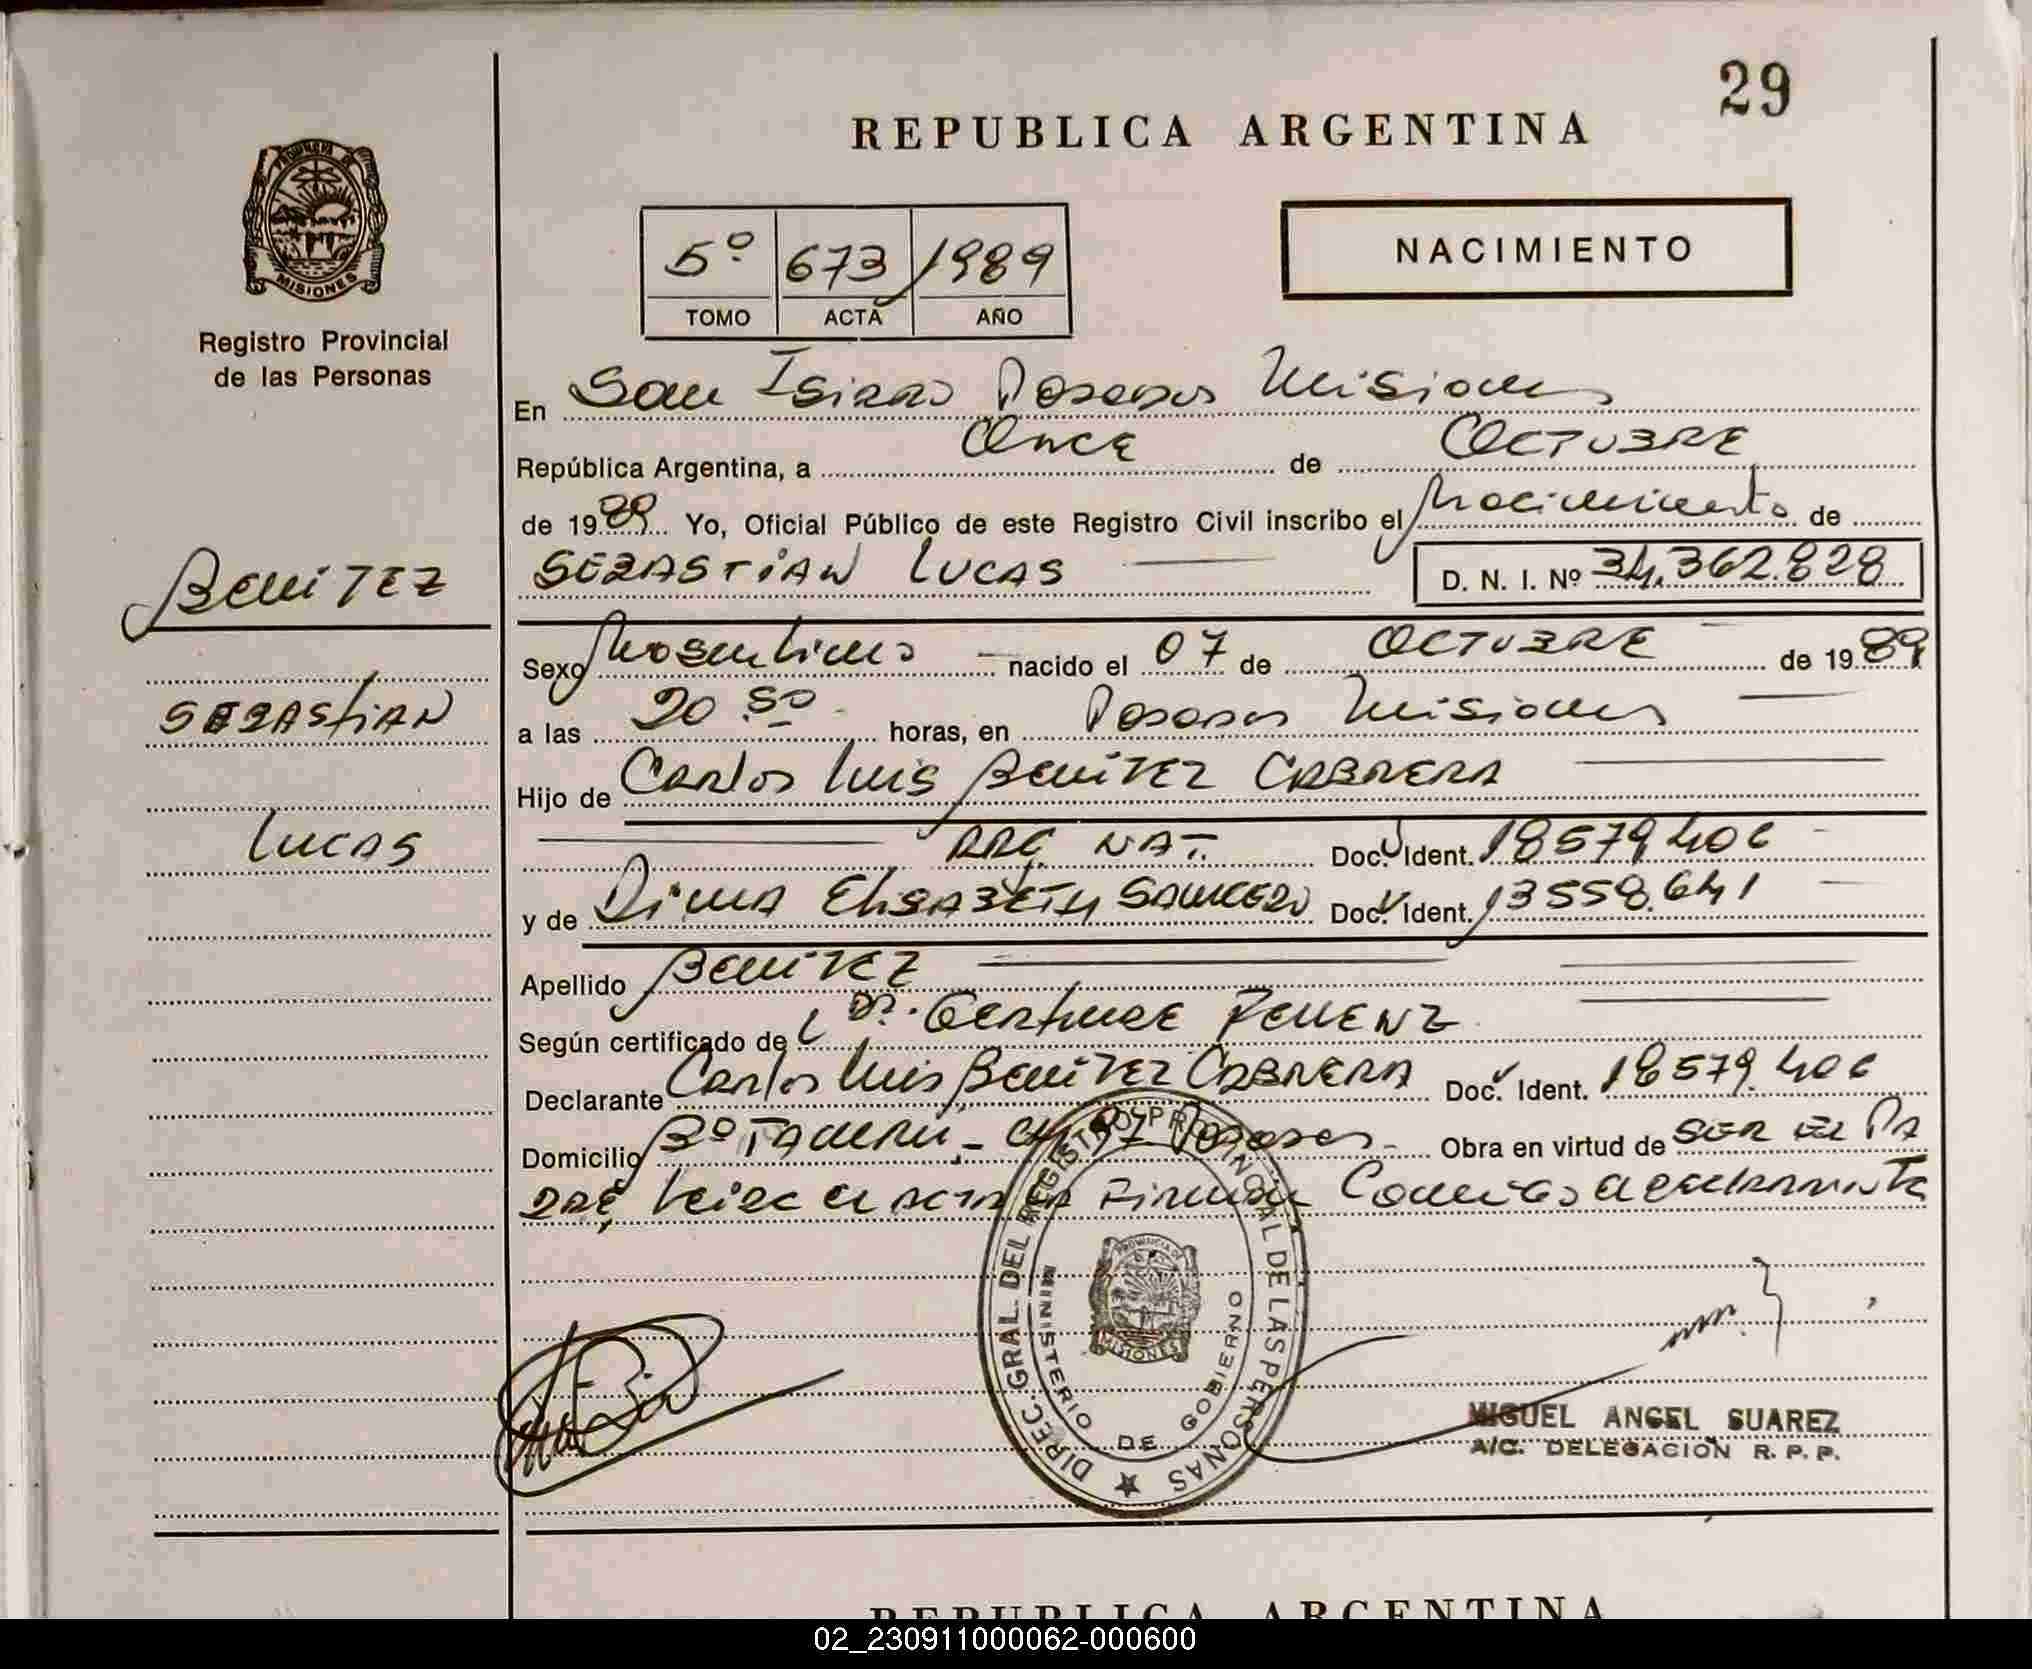 29
REPUBLICA ARGENTINA
PROVINCIA DE
MISIONES
Registro Provincial
de las Personas
5º 673 1989
TOMO ACTA AÑO
NACIMIENTO
En San Isidro Posadas Misiones
República Argentina, a Once de OCTUBRE
de 1989 Yo, Oficial Público de este Registro Civil inscribo el Nacimiento de
SEBASTIAN LUCAS D. N. I. Nº 34.362.828
BENITEZ
SEBASTIAN
LUCAS
Sexo Masculino nacido el 07 de OCTUBRE de 1989
a las 20 50 horas, en Posadas Misiones
Hijo de Carlos Luis BENITEZ CABRERA
ARG. NAT. Doc. Ident. 18579406
y de ELISABETH Doc. Ident. 13558.641
Apellido BENITEZ
Según certificado de Dr. Gertrude
Declarante Carlos Luis BENITEZ CABRERA Doc. Ident. 18579.406
Domicilio Bº Posadas - Obra en virtud de SER EL PA
DRE, Leida el acta Firman Conmigo
DIREC. GRAL. DEL REGISTRO PROVINCIAL DE LAS PERSONAS
MINISTERIO DE GOBIERNO
PROVINCIA DE
MISIONES
MIGUEL ANGEL SUAREZ
A/C. DELEGACION R. P. P.
REPUBLICA ARGENTINA
02_230911000062-000600